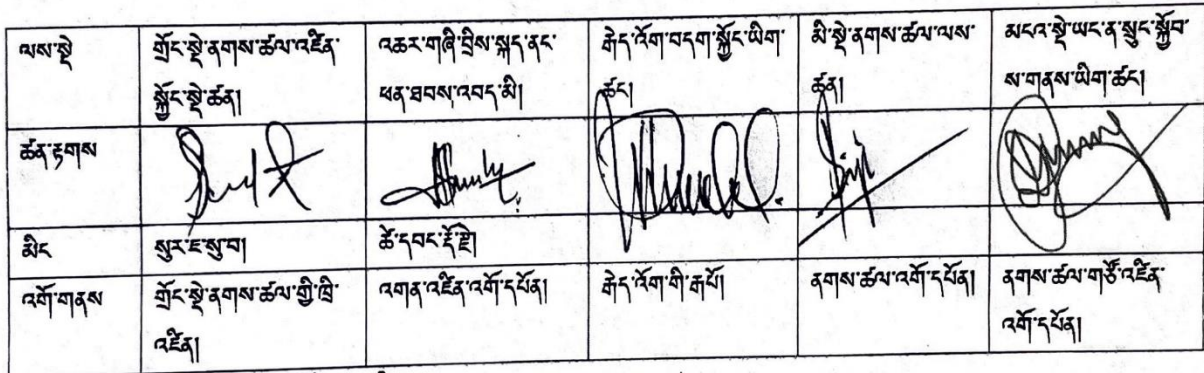 ལས་སྡེ
གྲོང་སྡེ་ནགས་ཚལ་འཛིན་
སྐྱོང་སྡེ་ཚན།
འཆར་གཞི་བྲིས་སྐད་ནང་
ཕན་ཐབས་འབད་མི།
རྒེད་འོག་བདག་སྐྱོང་ཡིག་
ཚང།
མི་སྡེ་ནགས་ཚལ་ལས་
ཚན།
མངའ་སྡེ་ཡང་ན་སྲུང་སྐྱོབ་
ས་གནས་ཡིག་ཚང།
ཚན་རྟགས
མིང
སུར་ཇ་སུ་བ།
ཚེ་དབང་རྡོ་རྗེ།
འགོ་གནས
གྲོང་སྡེ་ནགས་ཚལ་གྱི་ཁྲི་
འཛིན།
འགན་འཛིན་འགོ་དཔོན།
རྒེད་འོག་གི་རྒཔོ།
ནགས་ཚལ་འགོ་དཔོན།
ནགས་ཚལ་གཙོ་འཛིན་
འགོ་དཔོན།